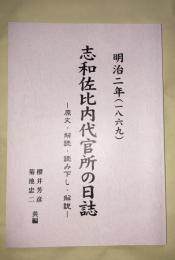 明治二年（一八六九）
志和佐比内代官所の日誌
―原文・解読・読み下し・解説―
櫻井芳彦
菊池忠二
共編